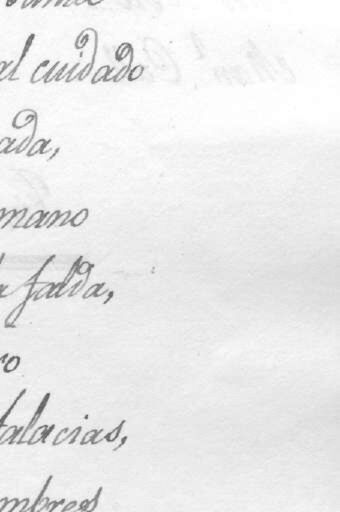 al cuidado
ada,
mano
a falda,
ro
falacias,
mbres